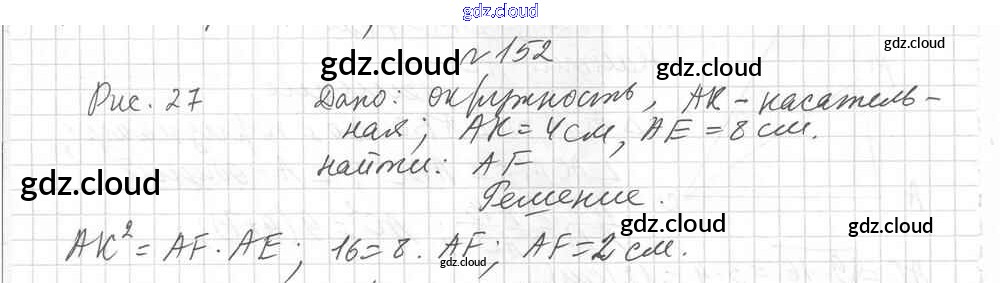 gdz.cloud
№ 152
gdz.cloud gdz.cloud gdz.cloud
Рис. 27 Дано: окружность, АК - касатель-
ная; АК = 4 см, АЕ = 8 см.
найти: AF
gdz.cloud
Решение.
gdz.cloud gdz.cloud
АК² = AF · AE; 16 = 8 · AF; AF = 2 см.
gdz.cloud